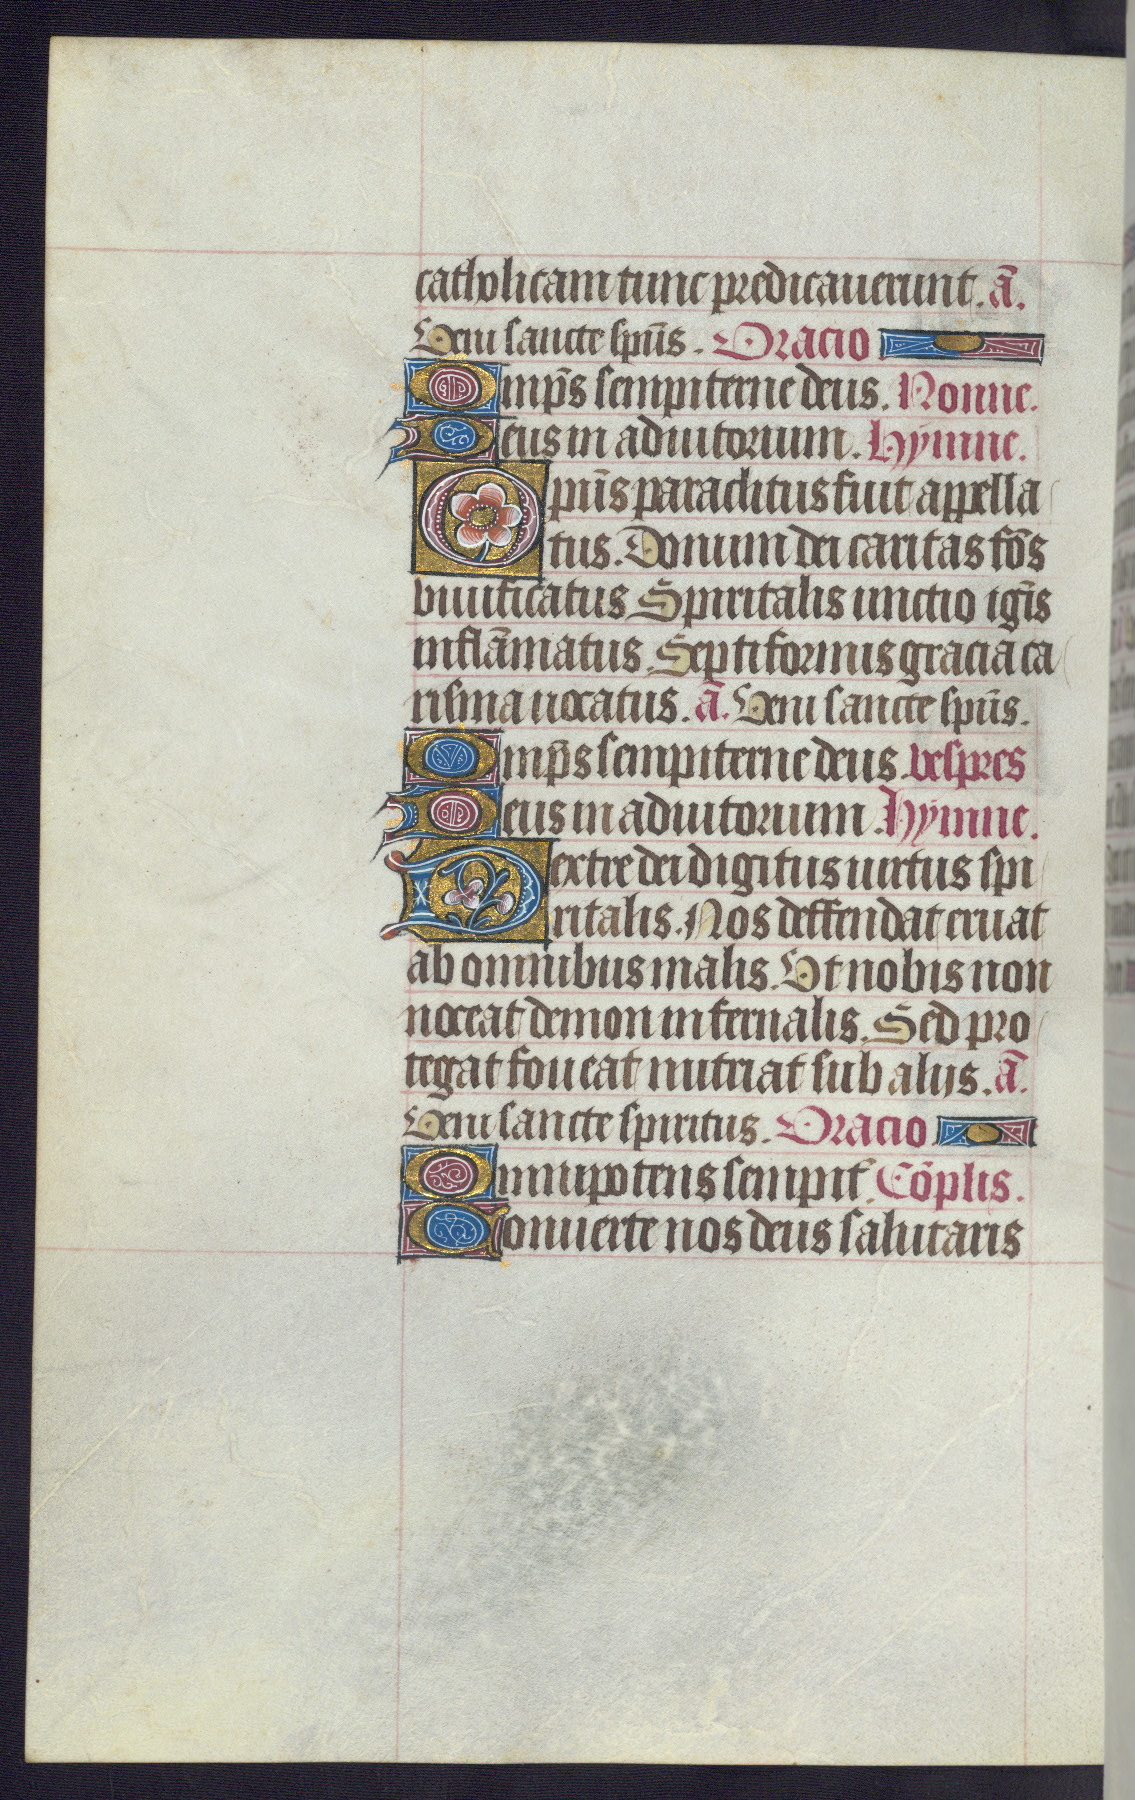 catholicam tunc predicauerunt. ā.
Veni sancte sp̄us. Oracio
Omp̄s sempiterne deus. Nonne.
Deus in adiutorium. Hymne.
Sp̄us paraclitus fuit appella
tus. Donum dei caritas fōs
viuificatus Spiritalis unctio igīs
inflāmatus. Septiformis gracia ca
risma uocatus. ā. Veni sancte sp̄us.
Omp̄s sempiterne deus. vespres
Deus in adiutorium. Hymne.
Dextre dei digitus uirtus spi
ritalis. Nos deffendat eruat
ab omnibus malis. Vt nobis non
noceat demon infernalis. Sed pro
tegat foueat nutriat sub aliis. ā.
Veni sancte spiritus. Oracio
Omnipotens sempit̄. Cōplis.
Conuerte nos deus salutaris